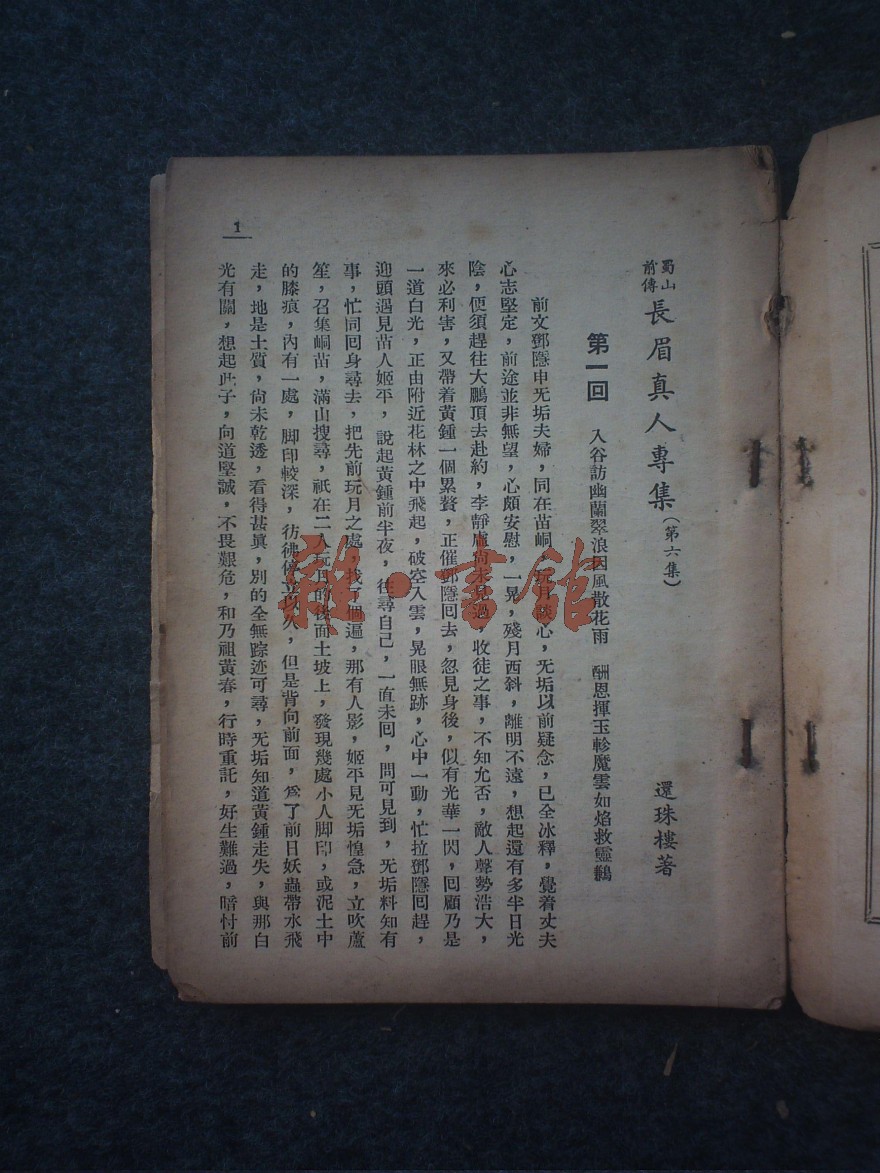 蜀山前傳 長眉真人專集(第六集) 還珠樓著
第一回 入谷訪幽蘭翠浪因風散花雨 酬恩揮玉軫魔雲如焰救靈鶵
前文鄧隱申无垢夫婦,同在苗峒,玩月談心,无垢以前疑念,已全冰釋,覺着丈夫
心志堅定,前途並非無望,心頗安慰,一晃,殘月西斜,離明不遠,想起還有多半日光
陰,便須趕往大鵬頂去赴約,李靜虛尙未見過,收徒之事,不知允否,敵人聲勢浩大,
來必利害,又帶着黃鍾一個累贅,正催鄧隱回去,忽見身後,似有光華一閃,回顧乃是
一道白光,正由附近花林之中飛起,破空入雲,晃眼無跡,心中一動,忙拉鄧隱回趕,
迎頭遇見苗人姬平,說起黃鍾前半夜,往尋自己,一直未回,問可見到,无垢料知有
事,忙同回身尋去,把先前玩月之處,找了個遍,那有人影,姬平見无垢惶急,立吹蘆
笙,召集峒苗,滿山搜尋,祇在二人玩月的後面土坡上,發現幾處小人脚印,或泥土中
的膝痕,內有一處,脚印較深,彷彿停立以久,但是背向前面,爲了前日妖蟲帶水飛
走,地是土質,尙未乾透,看得甚眞,別的全無踪迹可尋,无垢知道黃鍾走失,與那白
光有關,想起此子,向道堅誠,不畏艱危,和乃祖黃春,行時重託,好生難過,暗忖前
1
雜·書館